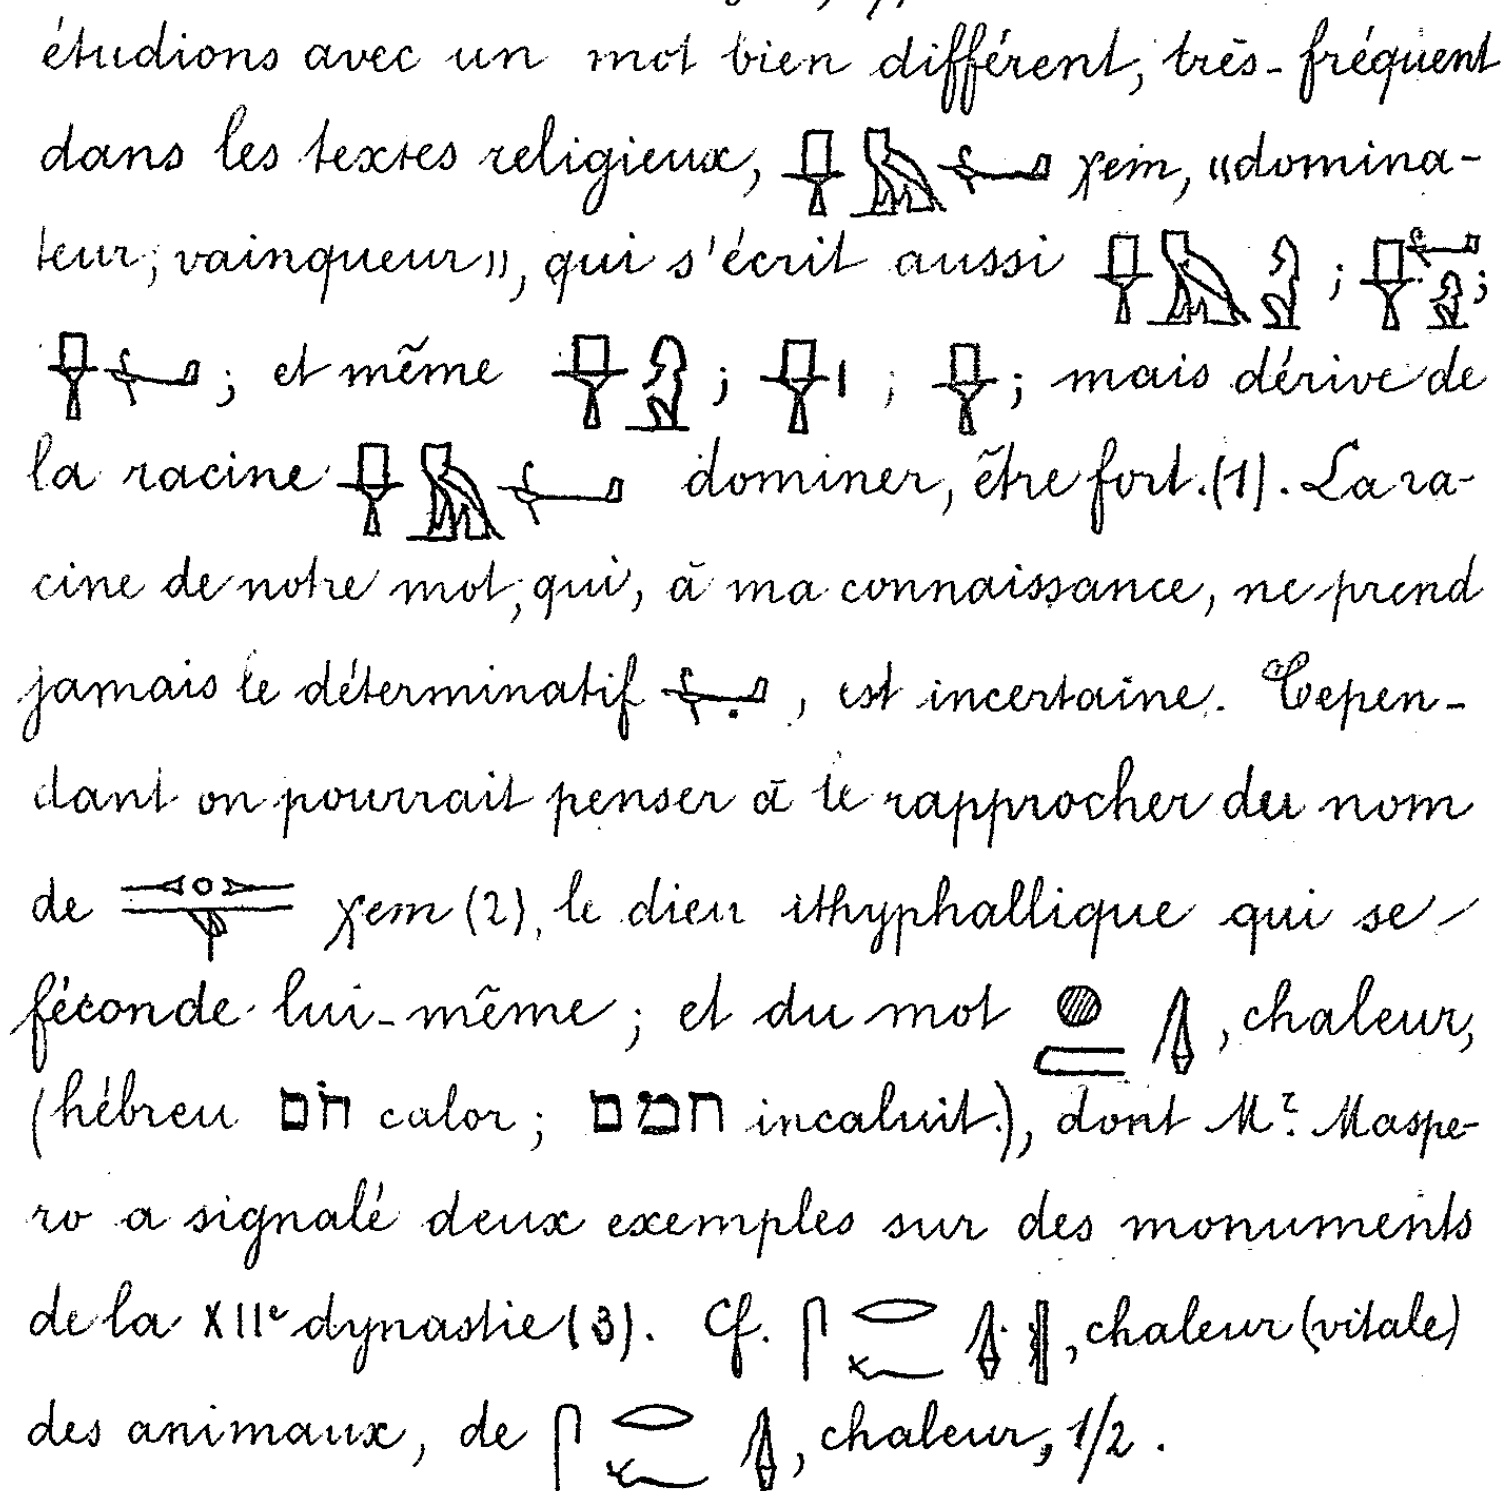 étudions avec un mot bien différent, très-fréquent
dans les textes religieux, χem, «domina-
teur, vainqueur», qui s'écrit aussi ; ;
; et même ; ; ; mais dérive de
la racine dominer, être fort.(1). La ra-
cine de notre mot, qui, à ma connaissance, ne prend
jamais le déterminatif , est incertaine. Cepen-
dant on pourrait penser à le rapprocher du nom
de χem (2), le dieu ithyphallique qui se
féconde lui-même ; et du mot , chaleur,
(hébreu חֹם calor ; חמם incaluit.), dont Mr. Maspe-
ro a signalé deux exemples sur des monuments
de la XIIe dynastie (3). Cf. , chaleur (vitale)
des animaux, de , chaleur, 1/2 .